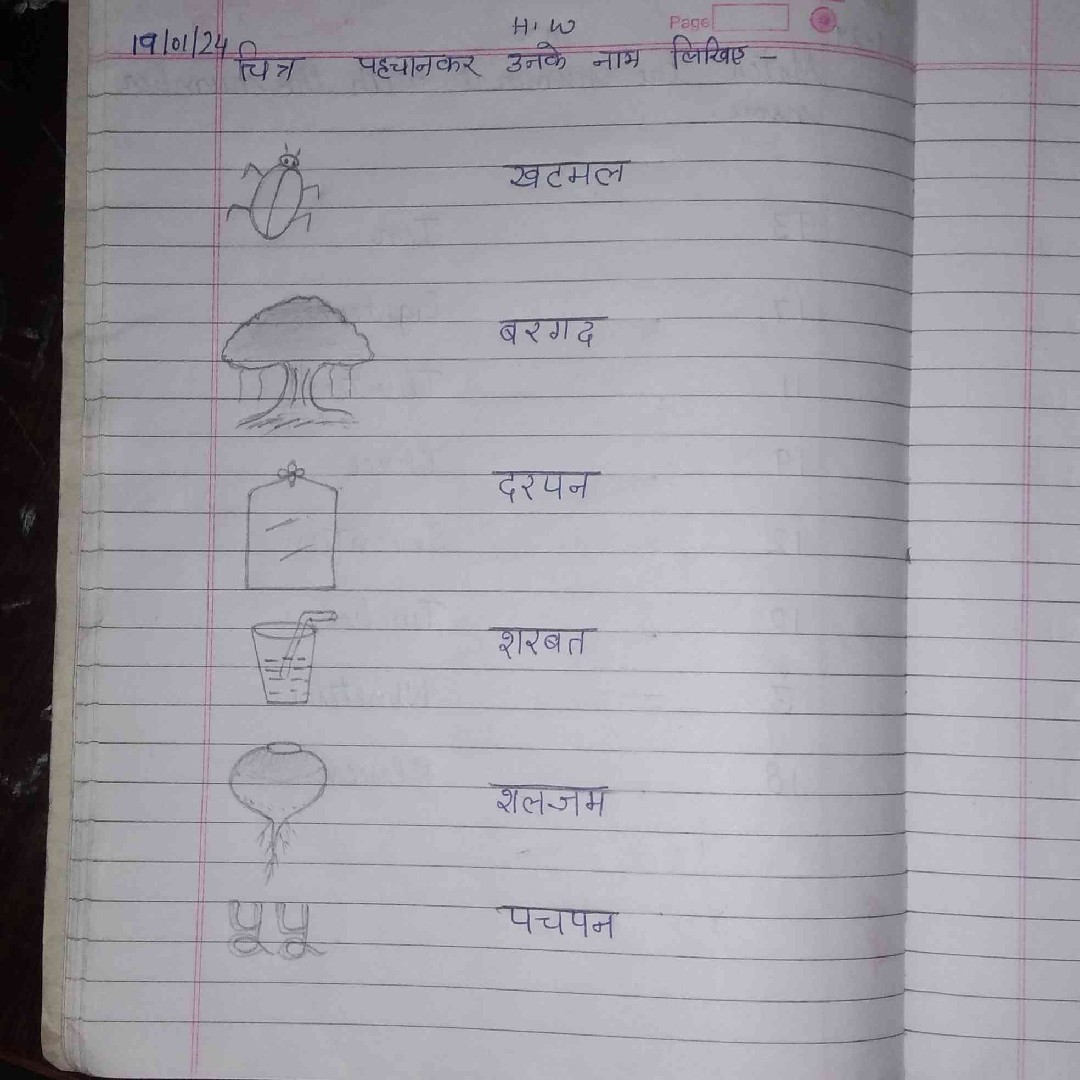 H.W
Page
19/01/24
चित्र पहचानकर उनके नाम लिखिए -
खटमल
बरगद
दरपन
शरबत
शलजम
५५ पचपन